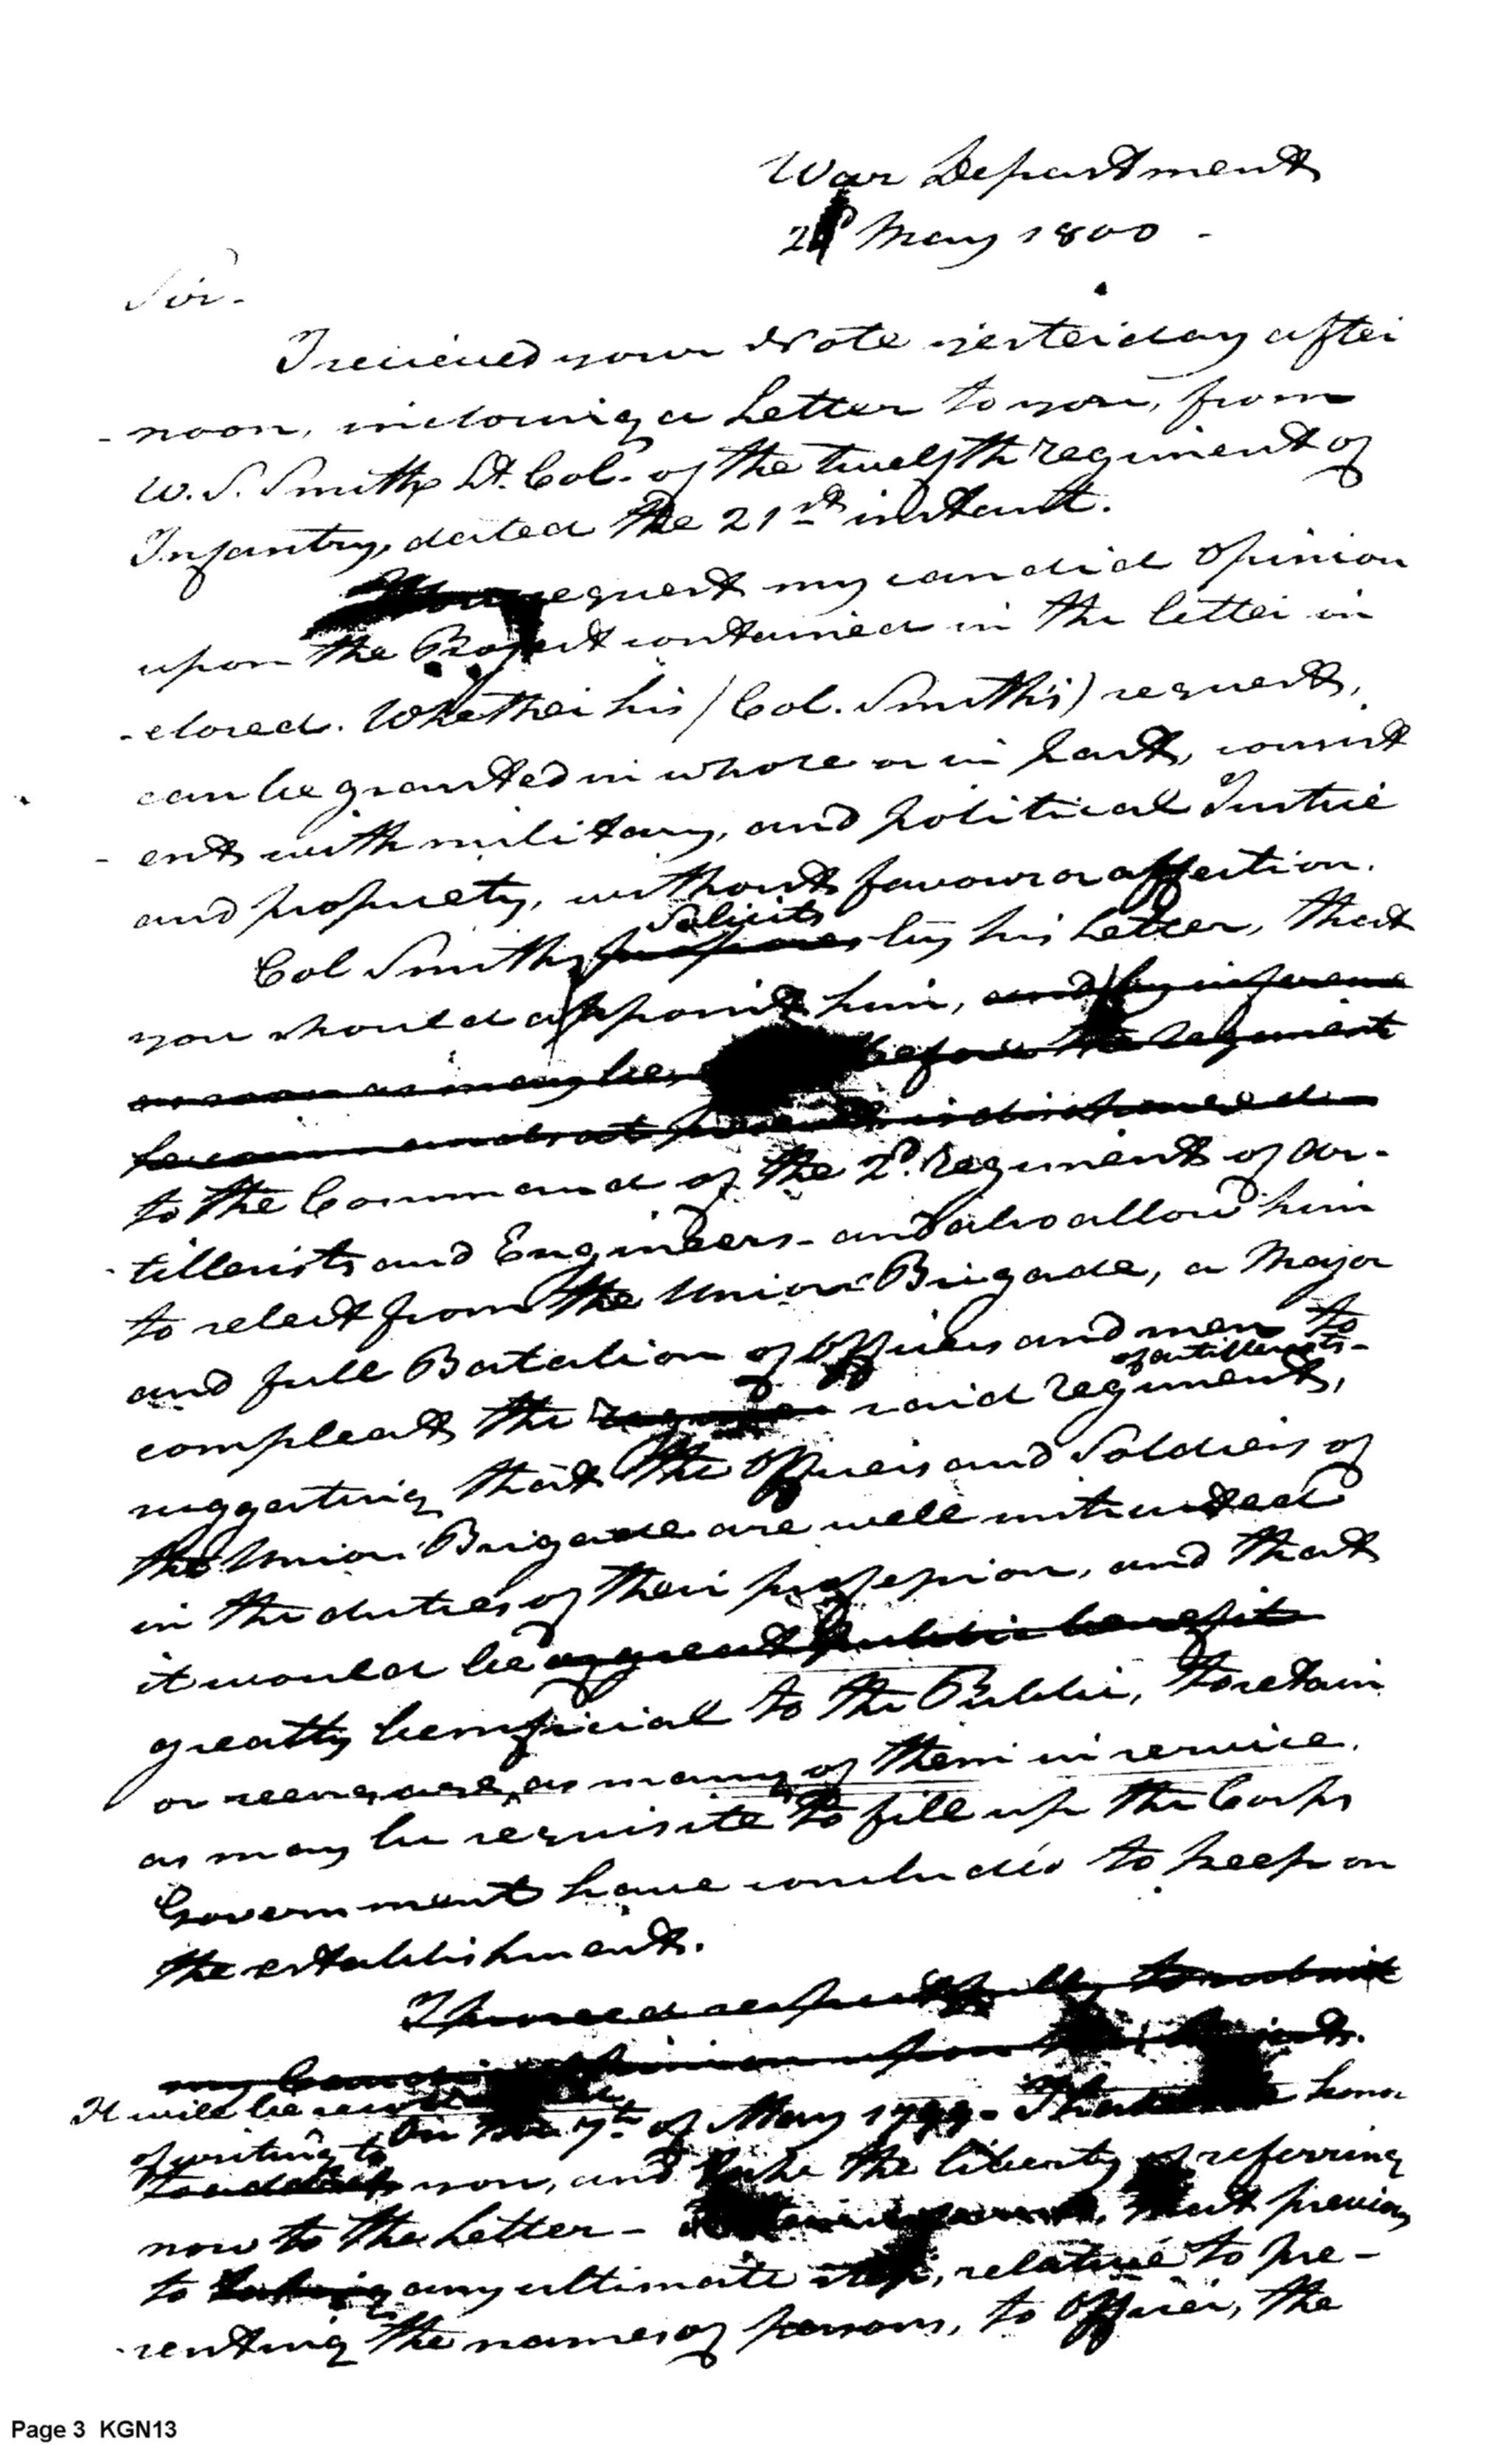 War Department
May 1800 -
Sir -
I recieved your Note yesterday after
- noon, inclosing a Letter to you, from
W. S. Smith Lt. Col. of the twelfth regiment of
Infantry, dated the 21st instant.
request my candid Opinion
upon the Project contained in the letter in
- closed. Whether his / Col. Smith's) request,
can be granted in whole or in part, consist
- ent with military, and political Justice
and propriety, without favour or affection.
Solicits
Col Smith proposes by his Letter, that
you should appoint him, and by inference
as soon as may be before the regiment
he commands at present is disbanded
to the Command of the 2d. regiment of Ar-
- tillerists and Engineers - and also allow him
to select from the Union Brigade, a Major
and full Batalion of Officers and men to
of artillerists -
compleat the said regiment,
suggesting that the Officers and Soldiers of
the Union Brigade are well instructed
in the duties of their profession, and that
it would be of great public benefit
greatly beneficial to the Public, to retain
or reengage, as many of them in service,
as may be requisite to fill up the Corps
Government have concluded to keep on
the establishment.
I proceed respectfully to submit
my Candid Opinion upon
It will be
On the 7th of May 1799 - I honor
of writing to
you, and take the liberty of referring
now to the Letter - that previous
to taking any ultimate step, relative to pre-
- senting the names of persons, to Officer, the
Page 3 KGN13